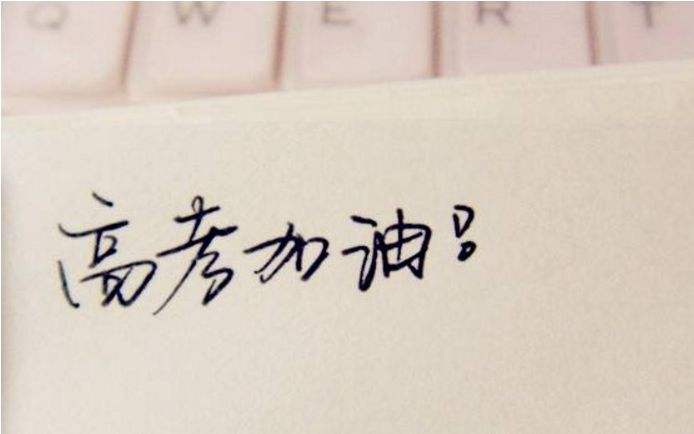 Q W E R T
高考加油!